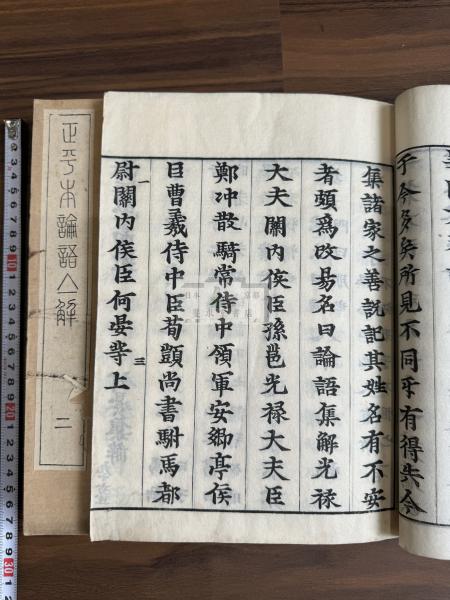 于今多矣所見不同㸦有得失今
集諸家之善說記其姓名有不安
者頗爲改易名曰論語集解光祿
大夫關內侯臣孫邕光祿大夫臣
鄭冲散騎常侍中領軍安鄉亭侯
臣曹羲侍中臣荀顗尚書駙馬都
尉關內侯臣何晏等上
一
三
正平本論語亼解
二